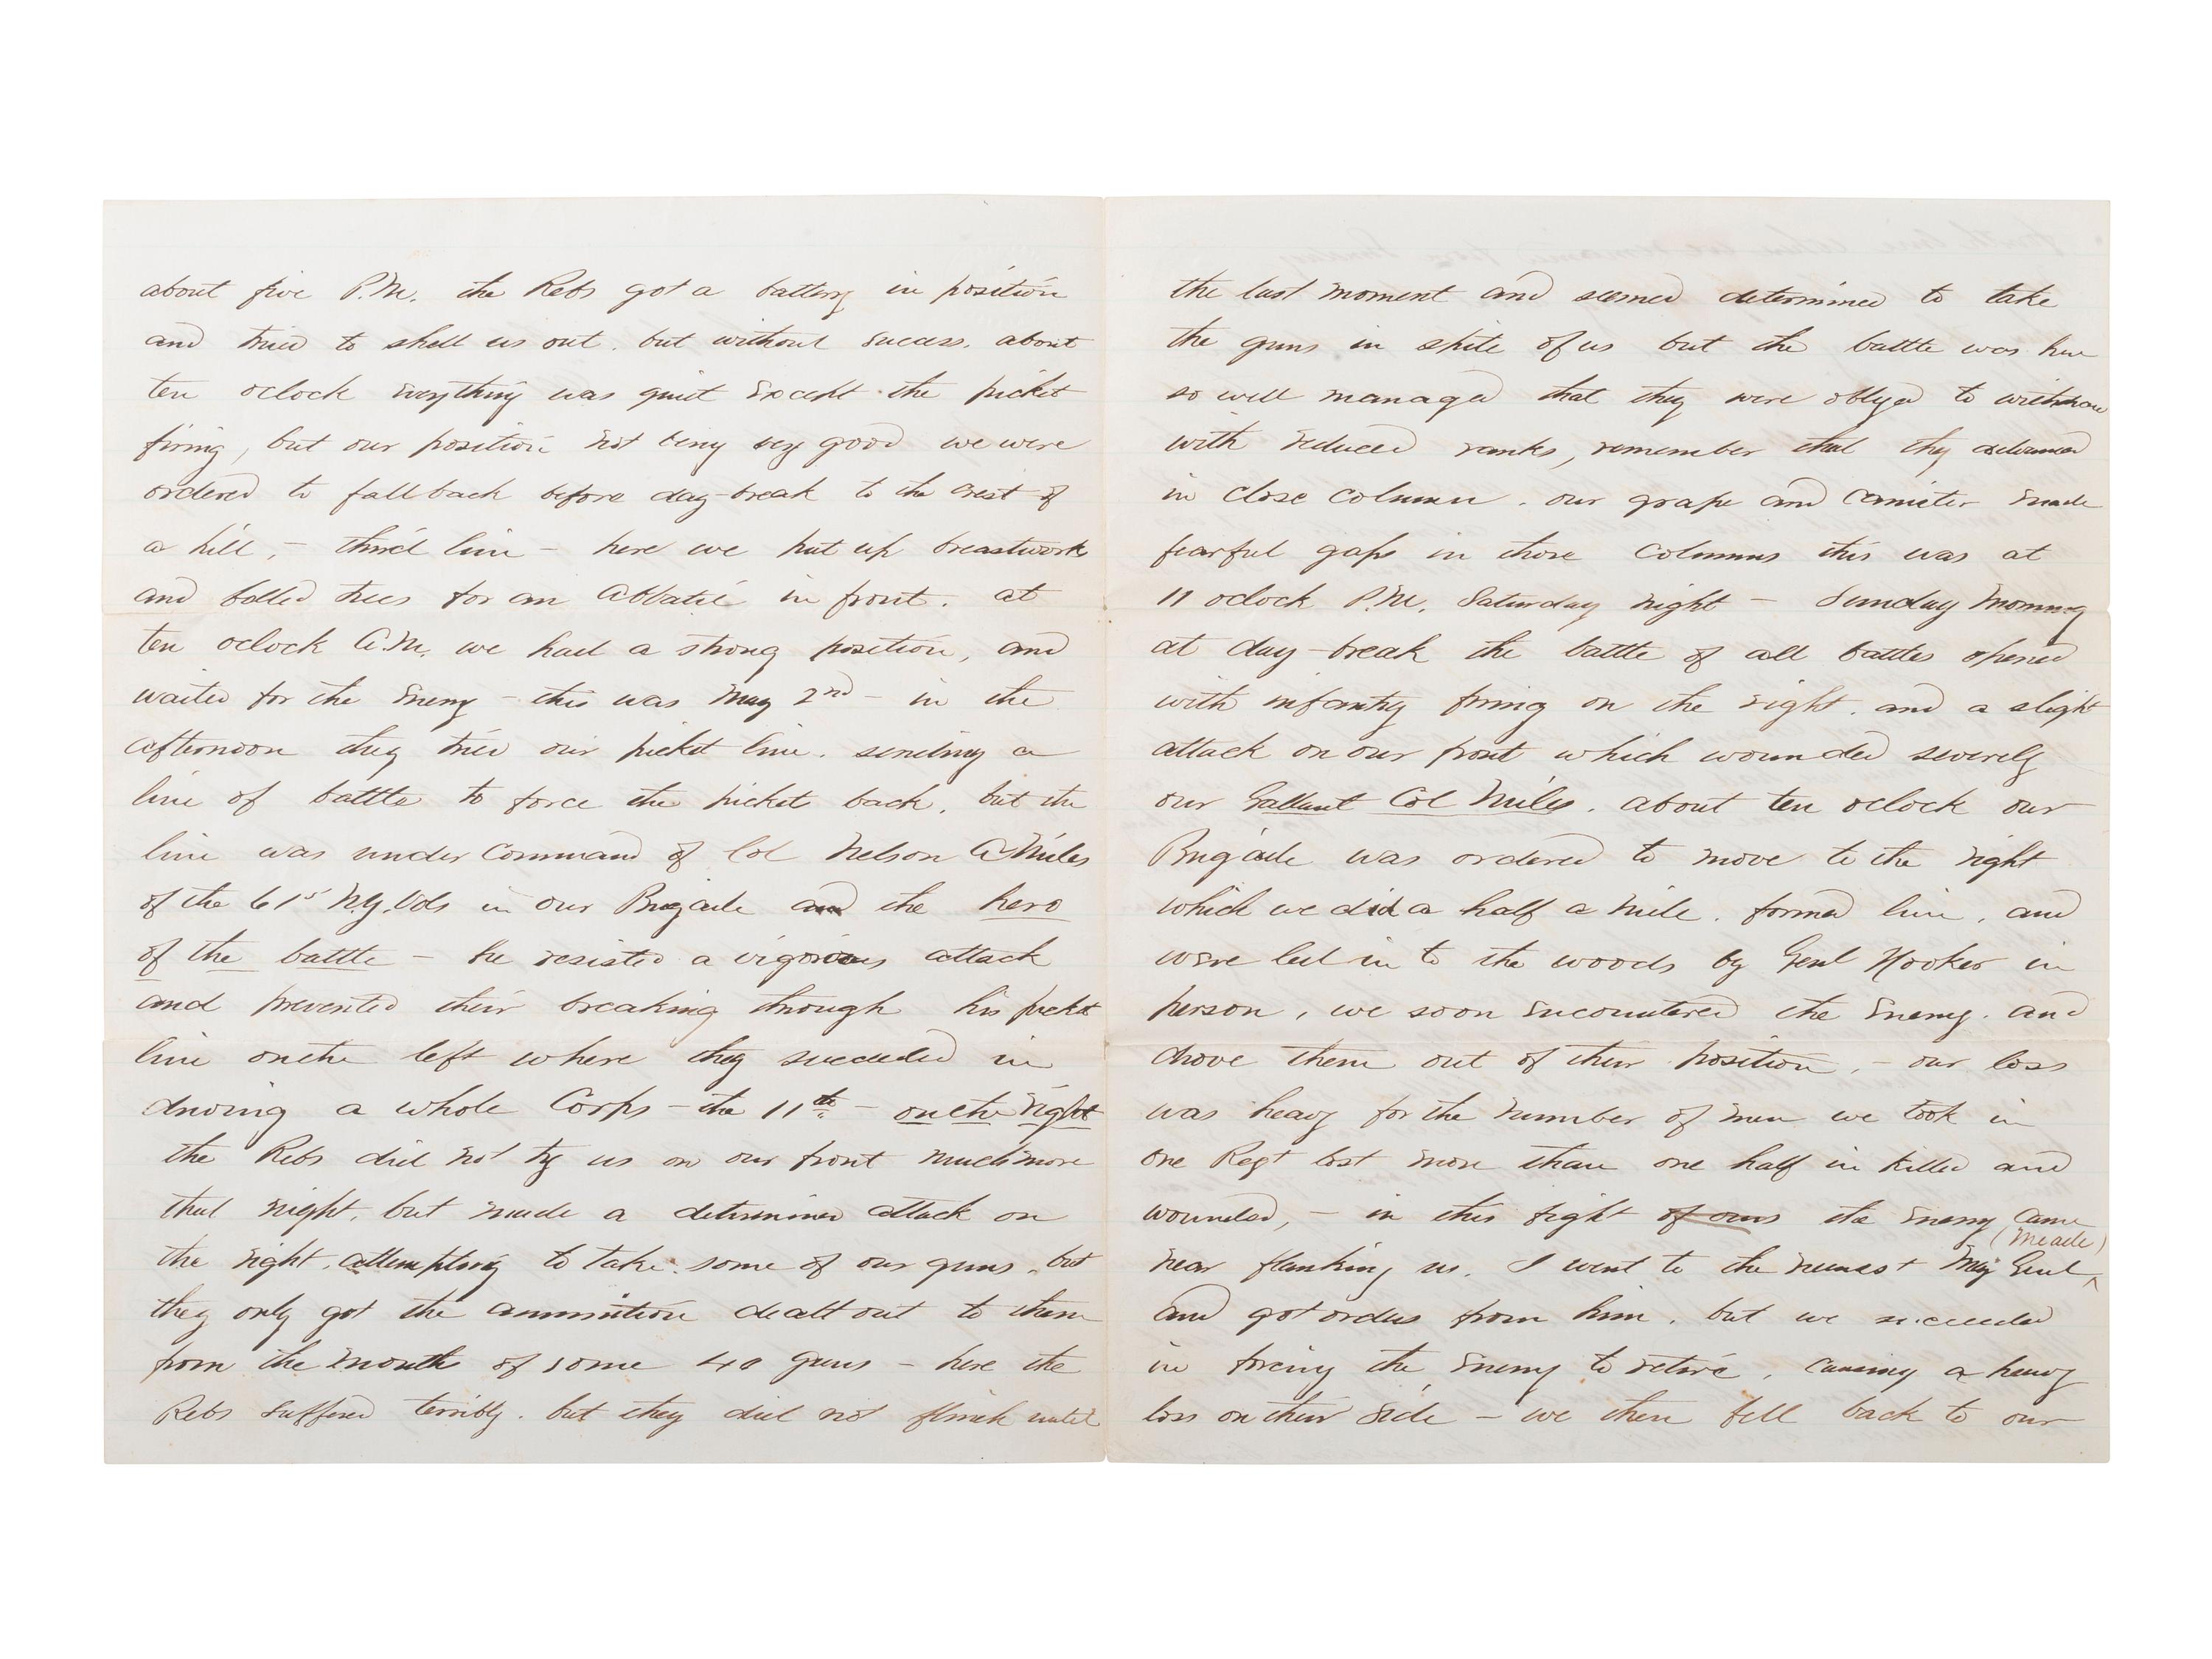 about five P.M. the Rebs got a battery in position
and tried to shell us out. but without success. about
ten oclock everything was quiet except the picket
firing, but our position not being very good we were
ordered to fall back before day-break to the crest of
a hill, - third line - here we put up breastwork
and felled trees for an Abbatié in front. at
ten oclock A.M. we had a strong position, and
waited for the Enemy - this was May 2nd - in the
afternoon they tried our picket line. sending a
line of battle to force the picket back, but the
line was under Command of Col Nelson A Miles
of the 61st N.Y. Vols in our Brigade and the hero
of the battle - he resisted a vigorious attack
and prevented their breaking through his picket
line on the left where they succeeded in
driving a whole Corps - the 11th - on the right
the Rebs did not try us on our front much more
that night, but made a determined attack on
the right. attempting to take some of our guns, but
they only got the ammition dealt out to them
from the mouth of some 40 guns - here the
Rebs suffered terribly. but they did not flinch until
the last moment and seemed determined to take
the guns in spite of us but the battle was here
so well managed that they were obliged to withdraw
with reduced ranks, remember that they advanced
in close column. our grape and canister made
fearful gaps in those columns this was at
11 oclock P.M. Saturday night - Sunday morning
at day-break the battle of all battles opened
with infantry firing on the right. and a slight
attack on our front which wounded severely
our Gallant Col Miles. about ten oclock our
Brigade was ordered to move to the right
which we did a half a mile. formed line, and
were led in to the woods by Genl Hooker in
person, we soon encountered the Enemy. and
drove them out of their position, - our loss
was heavy for the number of men we took in
one Regt lost more than one half in killed and
wounded, - in this fight of ours the enemy came
near flanking us. I went to the nearest Maj Genl (Meade)
and got orders from him, but we succeeded
in forcing the Enemy to retire, causing a heavy
loss on their side - we then fell back to our